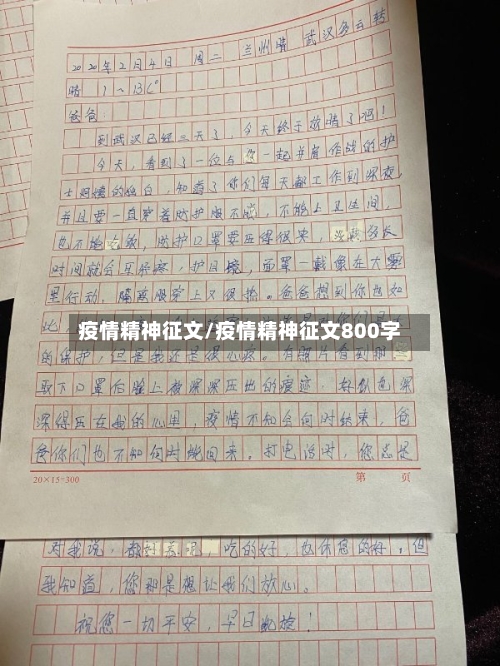 2020年2月4日 周二 兰州晴 武汉多云转
晴 1~13℃
爸爸:
到武汉已经三天了,今天终于放晴了吧!
今天,看到了一位与你一起并肩作战的护
士阿姨的独白,知道了你们每天都工作到深夜,
并且要一直穿着防护服不脱,不能上卫生间,
也不能吃饭,防护口罩要压得很紧,
时间就会耳朵疼,护目镜,面罩一戴像在大雾
里行动,隔离服穿上又很热。爸爸想到你也如
此,
疫情精神征文/疫情精神征文800字
的保护,但是我还是很心疼。有照片看到
取下口罩后脸上被深深压出的痕迹,好似也深
深得压在我的心里,疫情不知会何时结束,爸
爸你们也不知何时能回来。打电话时,您总是
20×15=300
第 页
对我说,都好着呢,吃的好,也休息的好,但
我知道,您那是想让我们放心。
祝您一切平安,早日凯旋!